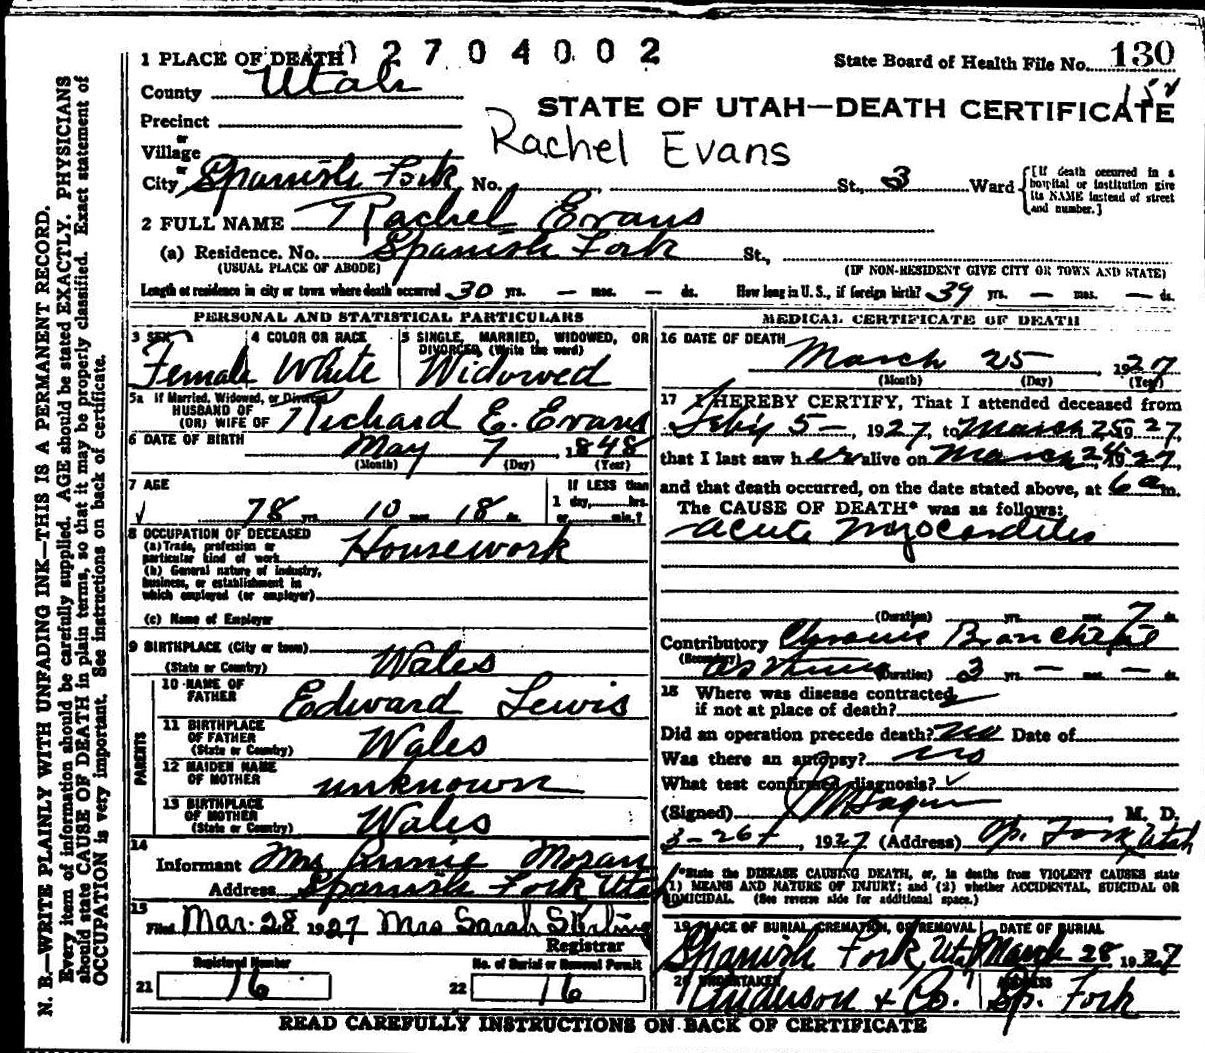 N. B.—WRITE PLAINLY WITH UNFADING INK—THIS IS A PERMANENT RECORD.
Every item of information should be carefully supplied. AGE should be stated EXACTLY. PHYSICIANS
should state CAUSE OF DEATH in plain terms, so that it may be properly classified. Exact statement of
OCCUPATION is very important. See instructions on back of certificate.
1 PLACE OF DEATH 2 7 0 4 0 0 2
State Board of Health File No. 130
County Utah
STATE OF UTAH—DEATH CERTIFICATE
Precinct
or
Village
Rachel Evans
or
City Spanish Fork No. St., 3 Ward
[If death occurred in a
hospital or institution give
its NAME instead of street
and number.]
2 FULL NAME Rachel Evans
(a) Residence. No. Spanish Fork St.,
(USUAL PLACE OF ABODE) (IF NON-RESIDENT GIVE CITY OR TOWN AND STATE)
Length of residence in city or town where death occurred 30 yrs. — mos. — ds. How long in U. S., if foreign birth? 39 yrs. — mos. — ds.
PERSONAL AND STATISTICAL PARTICULARS
3 SEX Female
4 COLOR OR RACE White
5 SINGLE, MARRIED, WIDOWED, OR
DIVORCED, (Write the word)
Widowed
5a If Married, Widowed, or Divorced
HUSBAND OF
(OR) WIFE OF Richard E. Evans
6 DATE OF BIRTH May 7, 1848
(Month) (Day) (Year)
7 AGE
78 yrs. 10 mos. 18 ds.
If LESS than
1 day, hrs.
or min.?
8 OCCUPATION OF DECEASED
(a) Trade, profession or
particular kind of work Housework
(b) General nature of industry,
business, or establishment in
which employed (or employer)
(c) Name of Employer
9 BIRTHPLACE (City or town)
(State or Country) Wales
PARENTS
10 NAME OF
FATHER Edward Lewis
11 BIRTHPLACE
OF FATHER
(State or Country) Wales
12 MAIDEN NAME
OF MOTHER unknown
13 BIRTHPLACE
OF MOTHER
(State or Country) Wales
14
Informant Mrs Annie Moran
Address Spanish Fork Utah
15
Filed Mar. 28 1927 Mrs Sarah Stirling
Registrar
Registered Number
21 16
No. of Burial or Removal Permit
22 16
MEDICAL CERTIFICATE OF DEATH
16 DATE OF DEATH
March 25, 1927
(Month) (Day) (Year)
17 I HEREBY CERTIFY, That I attended deceased from
Feby 5—, 1927, to March 25 1927,
that I last saw her alive on March 24 1927,
and that death occurred, on the date stated above, at 6 a m.
The CAUSE OF DEATH* was as follows:
acute myocarditis
(Duration) yrs. mos. 7 ds.
Contributory Chronic Bronchial
(Secondary) asthma (Duration) 3 yrs. — mos. — ds.
18 Where was disease contracted
if not at place of death?
Did an operation precede death? no Date of
Was there an autopsy? no
What test confirmed diagnosis?
(Signed) M. D.
3-26, 1927 (Address) Sp. Fork, Utah
*State the DISEASE CAUSING DEATH, or, in deaths from VIOLENT CAUSES state
(1) MEANS AND NATURE OF INJURY; and (2) whether ACCIDENTAL, SUICIDAL OR
HOMICIDAL. (See reverse side for additional space.)
19 PLACE OF BURIAL, CREMATION, OR REMOVAL
Spanish Fork, Utah
DATE OF BURIAL
March 28 1927
20 UNDERTAKER
Anderson & Co.
ADDRESS
Sp. Fork
READ CAREFULLY INSTRUCTIONS ON BACK OF CERTIFICATE